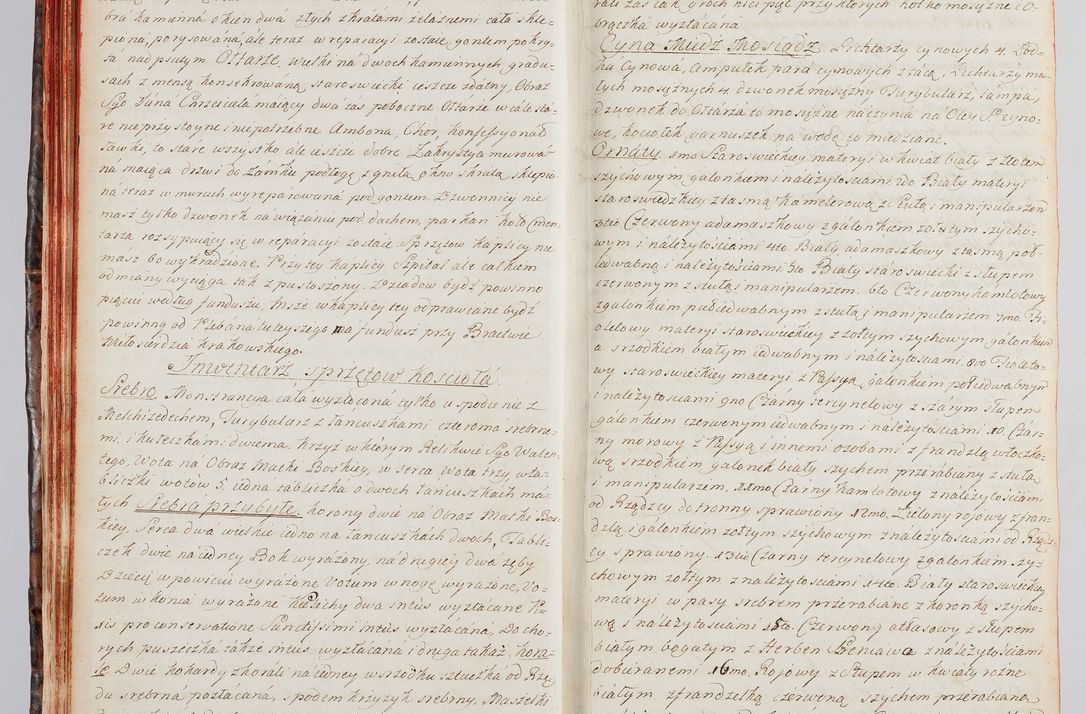 bra kamienna okien dwa złych zkratami żelaznemi cała skle-
piona, porysowana, ale teraz w reparacyi zostaie gontem pokry-
ta nadpsutym. Ołtarze, wielki na dwoch kamiennych gradu-
sach z mensą konsekrowaną staroswiecki ieszcze zdatny, Obraz
Sgo Jana Chrzciciela maiący dwa zas poboczne Ołtarze wcale sta-
re nieprzystoyne i niepotrzebne Ambona, Chor, konfessyonał
Ławki, to stare wszystko ale ieszcze dobre. Zakrystya murowa-
na maiąca drzwi do zamku podłogę zgniłą okno i krata sklepio-
na teraz w murach wyreparowana pod gontem. Dzwonnicy nie
masz tylko dzwonek na wiązaniu pod dachem, parkan koło Cmen-
tarza rozsypuiący się w reparacyi zostaie Sprzętow kaplicy nie
masz bo wykradzione. Przy tey kaplicy Szpital ale całkiem
odmiany wyciąga tak zpustoszony. Dziadow bydź powinno
pięciu według funduszu, Msze w kaplicy tey odprawiane bydź
powinny od Plebana tuteyszego ma fundusz przy Bractwie
Miłosierdzia krakowskiego.
Inwentarz sprzętow koscioła
Srebro. Monstrancya cała wyzłacona tylko u spodu nie z
Melchizedechem, Turybularz z łancuszkami czteroma srebrne-
mi i kułeczkami dwiema, krzyż w którym Relikwie Sgo Walen-
tego, Wota na Obraz Matki Boskiey, w serca Wota trzy, w ta-
bliczki wotow 5 iedna tabliczka o dwoch łancuszkach ma-
łych Srebra przybyłe. korony dwie na Obraz Matki Bos-
kiey, Serca dwa wielkie iedno na łancuszkach dwoch, Tabli-
czek dwie na iedney Bok wyrażony na drugiey dwa zęby
Dziecię w powiciu wyrażone Votum w nogę wyrażone, Vo-
tum w konia wyrażone Kielichy dwa intus wyzłacane Pi-
xis pro conservatione Sanctissimi intus wyzłacana, Do cho-
rych puszeczka także intus wyzłacana i druga takaż, kora-
le Dwie kokardy z korali na iedney w srzodku sztuczka od Rzę-
du srebrna pozłacana, spodem krzyżyk srebrny, Muszelki
brączka wyzłacana
Cyna Miedź Mosiądz. Lichtarzy cynowych 4. Łod-
ka Cynowa, Ampułek para cynowych z tacą, Lichtarzy ma-
łych mosiężnych 4 dzwonek mosiężny Turybularz, Lampa,
dzwonek do Ołtarza to mosiężne naczynia na Oley S. cyno-
we, kociołek garnuszek na wodę to miedziane.
Ornaty. 1mo Staroswieckiey materyi w kwiat biały z złotem
szychowym galonkiem i należytosciami 2do Biały materyi
staroswieckiey z tasmą kamelerową ze stułą i manipularzem
3tio Czerwony adamaszkowy z galonkiem żołtym szycho-
wym i należytosciami 4to. Biały adamaszkowy z tasmą poł-
iedwabną i należytosciami 5to Biały staroswiecki z słupem
czerwonym z stułą i manipularzem. 6to Czerwony kamlotowy
z galonkiem pułiedwabnym z stułą i manipularzem 7mo. Fi-
oletowy materyi staroswieckiey z żołtym szychowym galonkiem
a srzodkiem białym iedwabnym i należytosciami. 8vo Fioleto-
wy staroswieckiey materyi z Passyą, galonkiem połiedwabnym
i należytosciami 9no Czarny tercynelowy z szarym słupem
galonkiem czerwonym iedwabnym i należytosciami. 10. Czar-
ny morowy z Passyą i innemi osobami z frandzlą włoczko-
wą srzodkiem galonek biały szychem przerabiany z stułą
i manipularzem. 11mo Czarny kamlotowy z należytosciami
od Rządzcy de tronny sprawiony 12mo. Zielony rojowy z fran-
dzlą i galonkiem żołtym szychowym z należytosciami od Rządz-
cy sprawiony. 13tio Czarny tercynelowy z galonkiem szy-
chowym żołtym z należytosciami 14to. Biały staroswieckiey
materyi w pasy srebrem przerabiane z koronką szycho-
wą i należytosciami 15to. Czerwony atłasowy z słupem
białym bogatym z Herbem Beniawa z należytosciami
dobieranemi. 16mo. Rojowy z słupem w kwiaty rożne
białym z frandzelką czerwoną szychem przerabianą